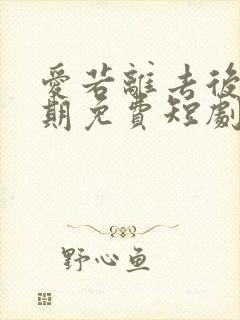 愛若離去後
期免費短劇
野心鱼